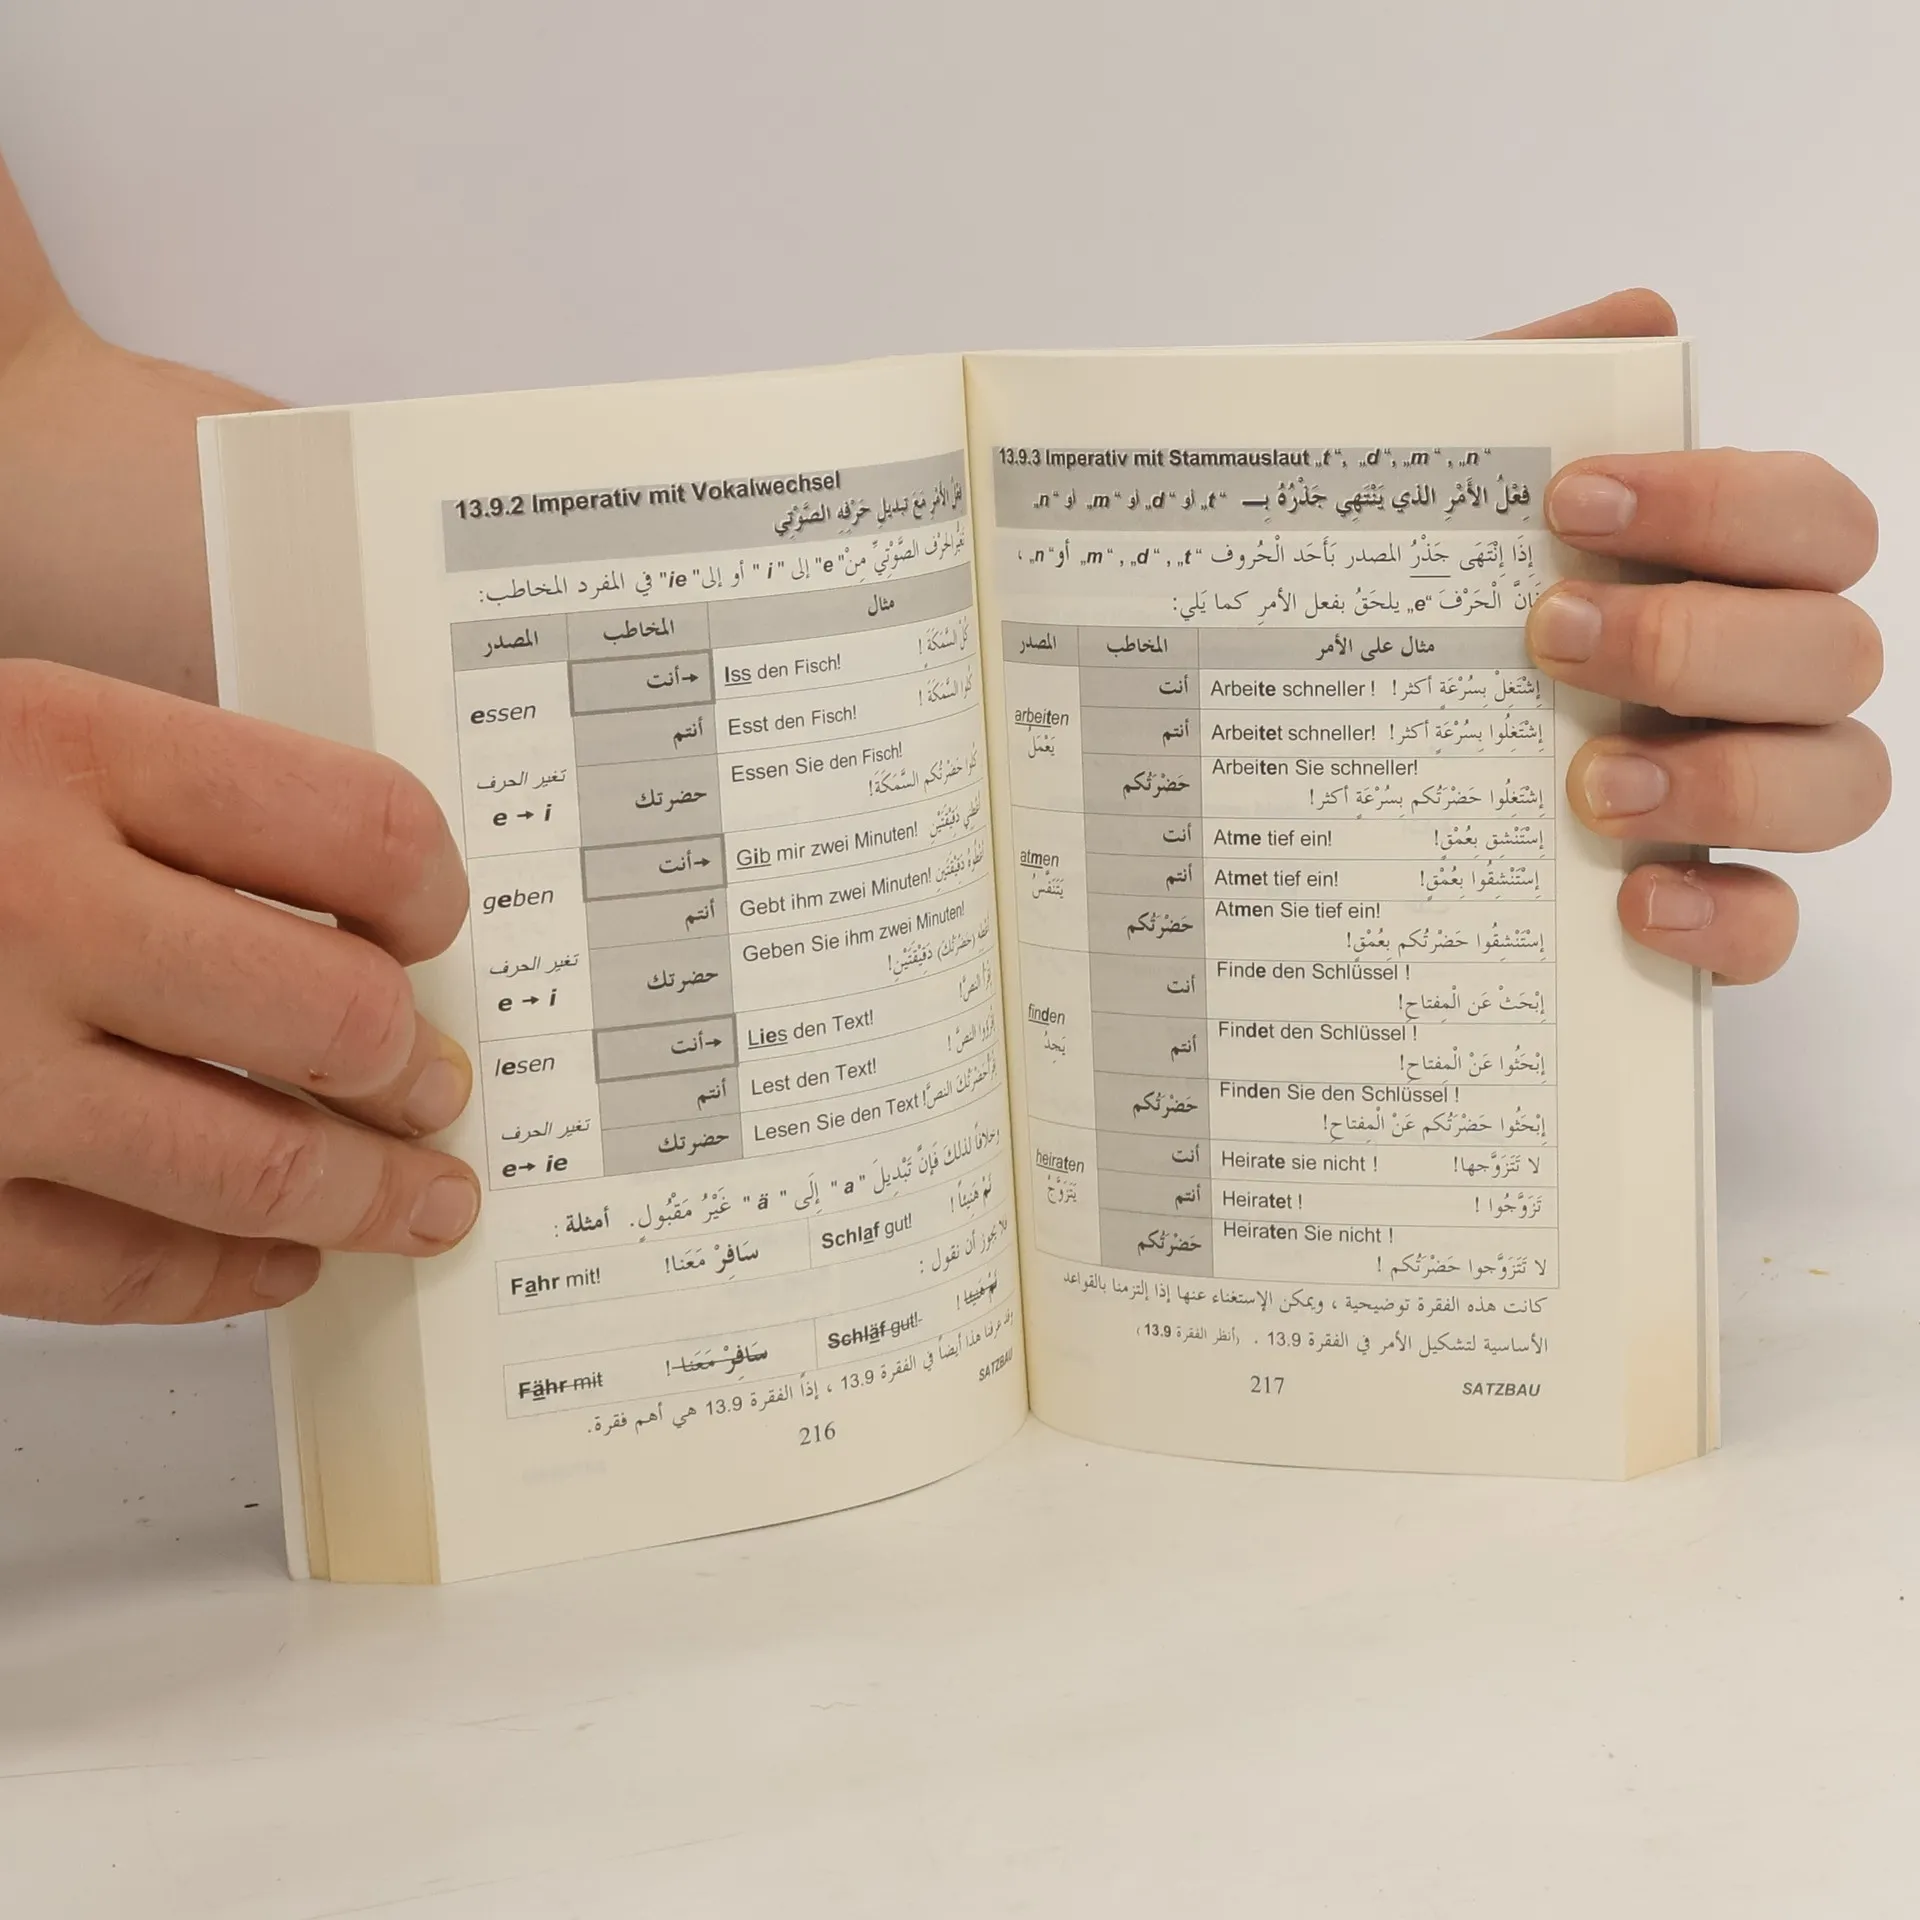 13.9.2 Imperativ mit Vokalwechsel
فِعْلُ الأَمْرِ مَعَ تبديلِ حَرْفِهِ الصَّوْتِي
تَغَيُّرُ الحَرْف الصَّوْتِيِّ مِنْ "e" إلى "i" أو إلى "ie" في المفرد المخاطب:
المصدر المخاطب مثال
essen
تغير الحرف
e → i
→أنت Iss den Fisch! كُلْ السَّمَكَةَ !
أنتم Esst den Fisch! كُلُوا السَّمَكَةَ !
حضرتك Essen Sie den Fisch!
كُلُوا حَضْرَتُكم السَّمَكَةَ!
geben
تغير الحرف
e → i
→أنت Gib mir zwei Minuten! دَقِيْقَتَيْنِ
أنتم Gebt ihm zwei Minuten! دَقِيْقَتَيْنِ
حضرتك Geben Sie ihm zwei Minuten!
(حَضْرَتُكَ) دَقِيْقَتَيْنِ!
lesen
تغير الحرف
e→ ie
→أنت Lies den Text! النصَّ!
أنتم Lest den Text! النصَّ !
حضرتك Lesen Sie den Text! النصَّ!
وخلافاً لذلكَ فَإنَّ تَبْدِيلَ "a" إلَى "ä" غَيْرُ مَقْبُولٍ. أمثلة :
Fahr mit! سَافِرْ مَعَنا! Schlaf gut! نَمْ هَنِيئاً !
ولا يجوز أن نقول :
Fähr mit سَافِرْ مَعَنا ! Schläf gut! نَمْ هَنِيئا !
وقد عرفنا هذا أيضاً في الفقرة 13.9 ، إذاً الفقرة 13.9 هي أهم فقرة.
SATZBAU
216
13.9.3 Imperativ mit Stammauslaut „t“, „d“, „m“, „n“
فِعْلُ الأَمْرِ الذي يَنْتَهِي جَذْرُهُ بِـــ „t“ أو „d“ أو „m“ أو „n“
إذَا إنْتَهَى جَذْرُ المصدر بَأَحَد الْحُروف „t“, „d“, „m“ أو „n“ ،
فَإنَّ الْحَرْفَ „e“ يلحَقُ بفعل الأمرِ كما يَلي:
المصدر المخاطب مثال على الأمر
arbeiten
يَعْمَلُ
أنت Arbeite schneller ! إشْتَغِلْ بِسُرْعَةٍ أكثر !
أنتم Arbeitet schneller! إشْتَغِلُوا بِسُرْعَةٍ أكثر!
حَضْرَتُكم Arbeiten Sie schneller!
إشْتَغِلُوا حَضْرَتُكم بِسُرْعَةٍ أكثر!
atmen
يَتَنَفَّسُ
أنت Atme tief ein! إسْتَنْشِق بِعُمْقٍ!
أنتم Atmet tief ein! إسْتَنْشِقُوا بِعُمْقٍ!
حَضْرَتُكم Atmen Sie tief ein!
إسْتَنْشِقُوا حَضْرَتُكم بِعُمْقٍ!
finden
يَجِدُ
أنت Finde den Schlüssel !
إبْحَثْ عَن الْمِفتاحِ!
أنتم Findet den Schlüssel !
إبْحَثُوا عَنْ الْمِفتاحِ!
حَضْرَتُكم Finden Sie den Schlüssel !
إبْحَثُوا حَضْرَتُكم عَنْ الْمِفتاحِ!
heiraten
يَتَزَوَّجُ
أنت Heirate sie nicht ! لا تَتَزَوَّجها!
أنتم Heiratet ! تَزَوَّجُوا !
حَضْرَتُكم Heiraten Sie nicht !
لا تَتَزَوَّجوا حَضْرَتُكم !
كانت هذه الفقرة توضيحية ، ويمكن الإستغناء عنها إذا إلتزمنا بالقواعد
الأساسية لتشكيل الأمر في الفقرة 13.9 . (أنظر الفقرة 13.9)
217
SATZBAU